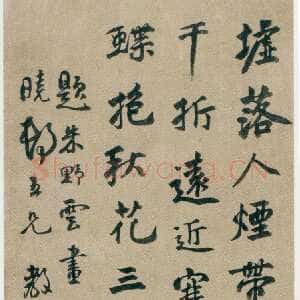 墟落人煙帶
千折遠近寒
蝶抱秋花三
題朱野雲畫
曉村五兄教